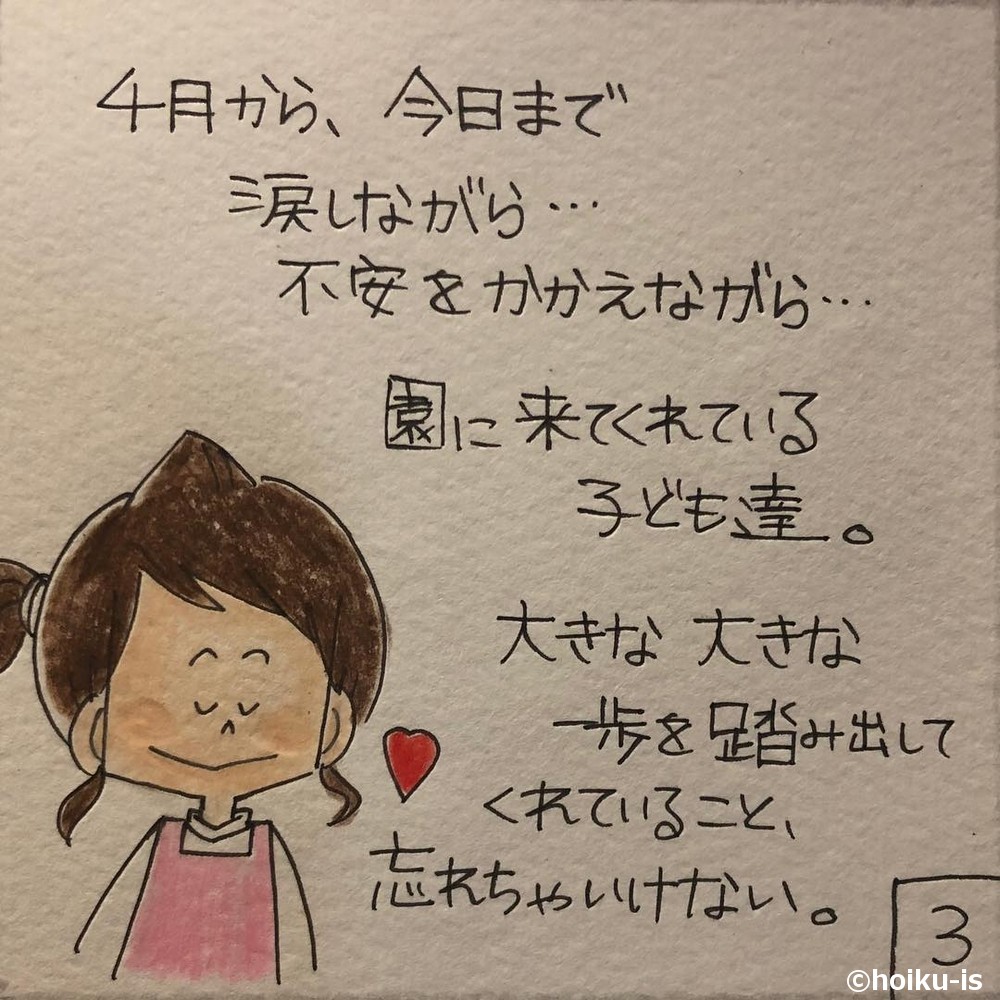 4月から、今日まで
涙しながら…
不安をかかえながら…
園に来てくれている
子ども達。
大きな 大きな
一歩を踏み出して
くれていること、
忘れちゃいけない。
3
©hoiku-is